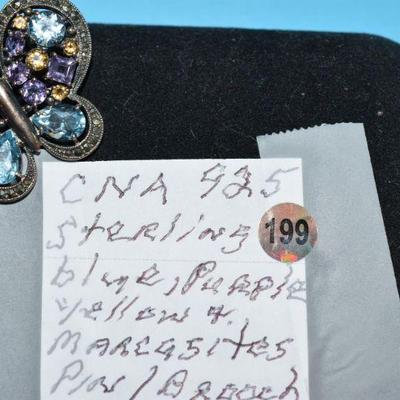 CNA 925
Sterling
199
blue, Purple
Yellow &
Marcasites
Pin / Brooch